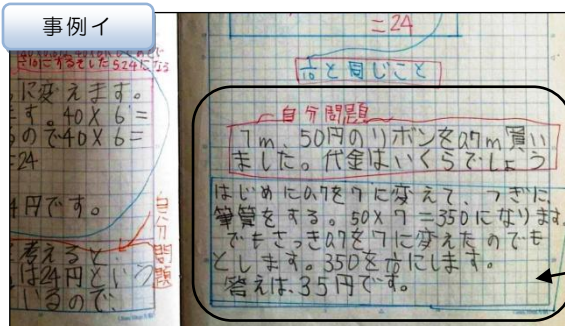 事例イ
=24
さ10にするでした5.24になる
に変えます。
す。40×6=
ので40×6=
=24
4円です。
自分問題
考えると、
は24円という
いるので、
1/10と同じこと
自分問題
1m、50円のリボンを0.7m買い
ました。代金はいくらでしょう
はじめに0.7を7に変えて、つぎに、
筆算をする。50×7=350になります。
でもさっき0.7を7に変えたのでも
とします。350を1/10にします。
答えは、35円です。